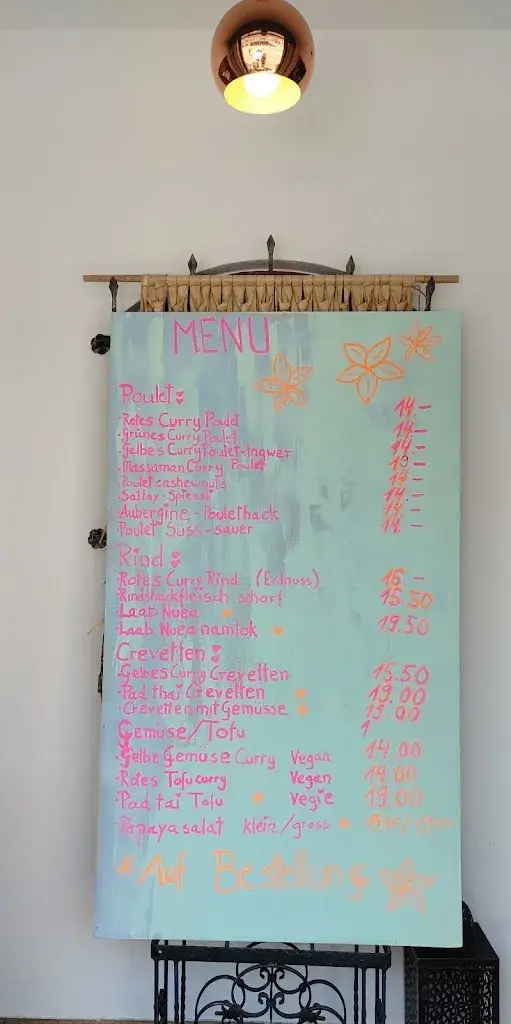 MENU
Poulet:
·Rotes Curry Poulet 14.–
·Grünes Curry Poulet 14.–
·Gelbes Curry Poulet-Ingwer 14.–
·Massaman Curry Poulet 19.–
·Poulet cashewnuts 14.–
·Sattay-Spiessli 14.–
·Aubergine-Poulethack 14.–
·Poulet Süss-sauer 14.–
Rind:
·Rotes Curry Rind (Erdnuss) 16.–
·Rindshackfleisch scharf 15.50
·Laab Nuea
·Laab Nuea namtok 19.50
Crevetten:
·Gelbes Curry Crevetten 15.50
·Pad thai Crevetten 19.00
·Crevetten mit Gemüsse 19.00
Gemüse/Tofu 1
·Gelbe Gemüse Curry Vegan 14.00
·Rotes Tofu curry Vegan 14.00
·Pad tai Tofu vegie 19.00
·Papaya salat klein/gross
*Auf Bestellung